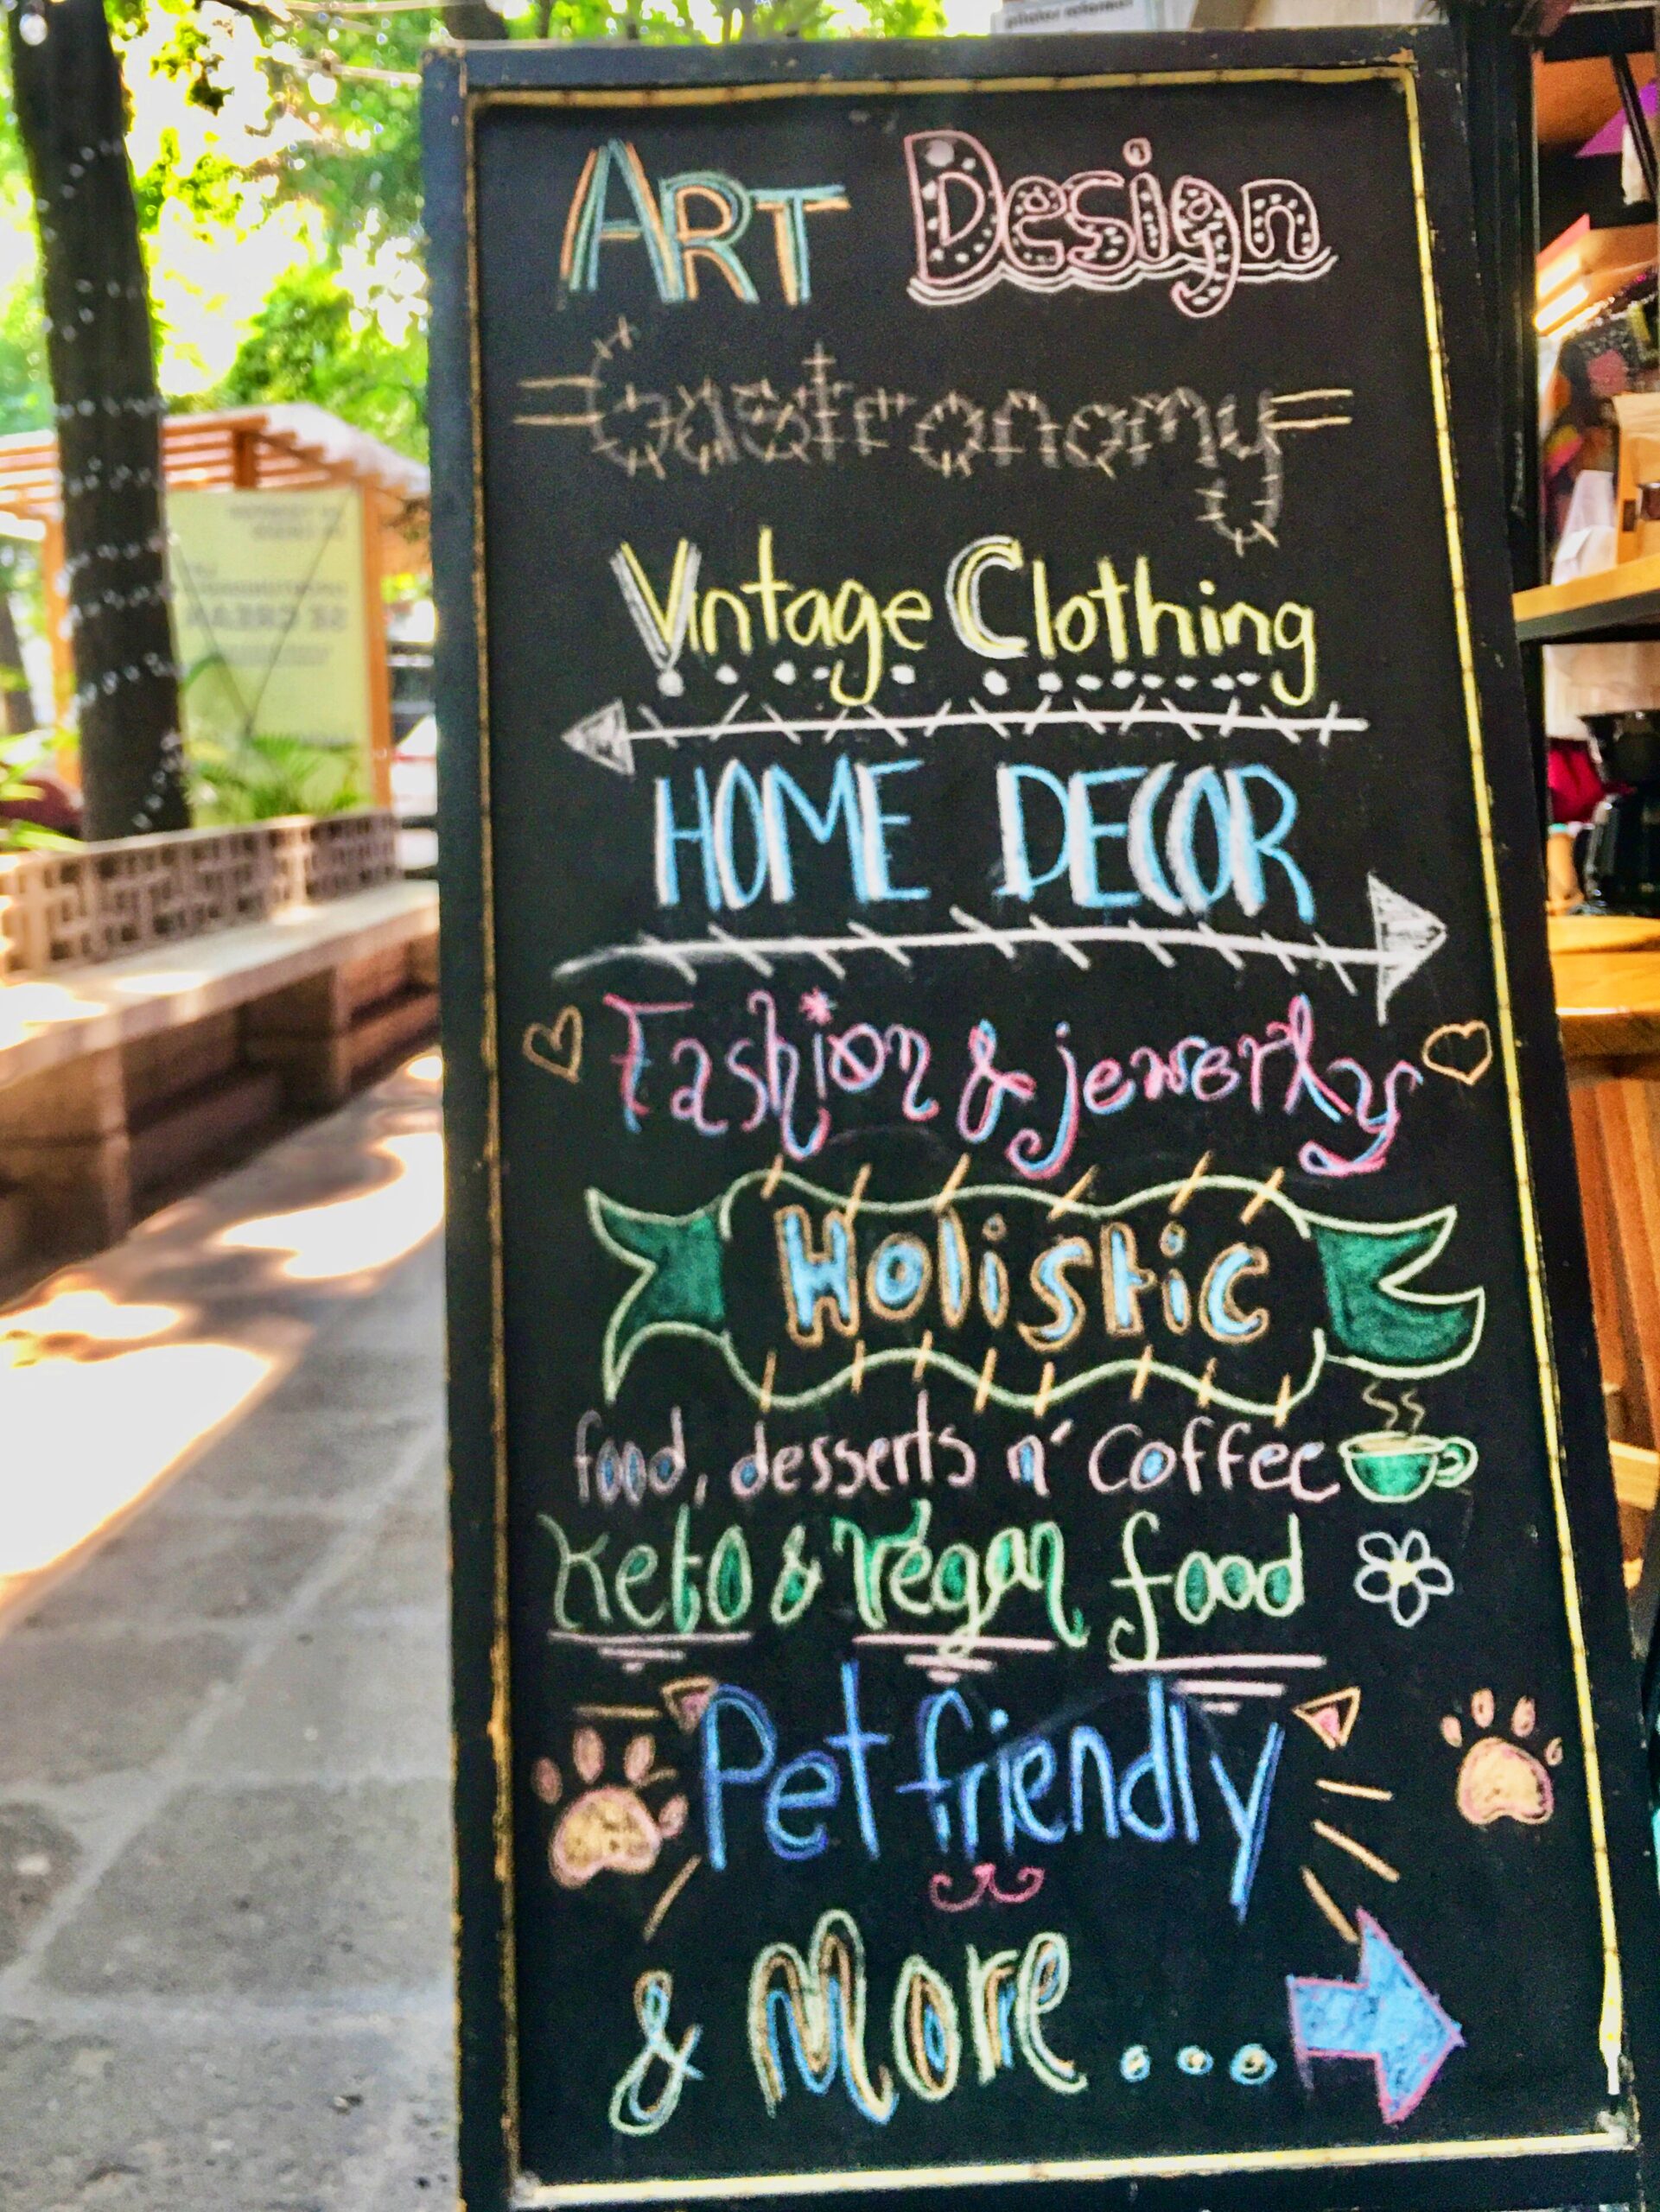 ART Design
Gastronomy
Vintage Clothing
HOME DECOR
Fashion & jewerly
Holistic
food, desserts n' Coffee
Keto & Vegan food
Pet friendly
& More...
SE CREAN